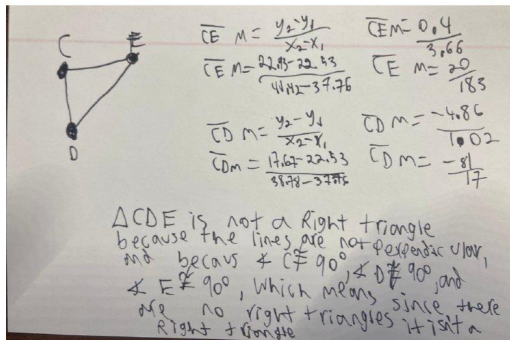 C E
D
CE M = y2-y1 / x2-x1
CE M = 22.93-22.53 / 41.42-37.76
CE M = 0.4 / 3.66
CE M = 20 / 183
CD M = y2-y1 / x2-x1
CD M = 17.67-22.53 / 38.78-37.76
CD M = -4.86 / 1.02
CD M = -81 / 17
△CDE is not a Right triangle
because the lines are not perpendicular,
and becaus ∡ C≠ 90°, ∡ D≠ 90°, and
∡ E≠ 90°, which means since there
are no right triangles it isnt a
Right triangle